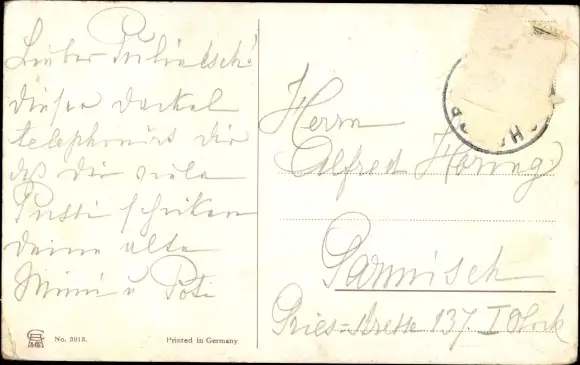 Lieber
dieser dackel
telephonirt dir
daß die viele
Pussi schicken
deine alte
Mimi u Poti
No. 3913.
Printed in Germany
Herrn
Alfred Höring
Garmisch
137. I Stock